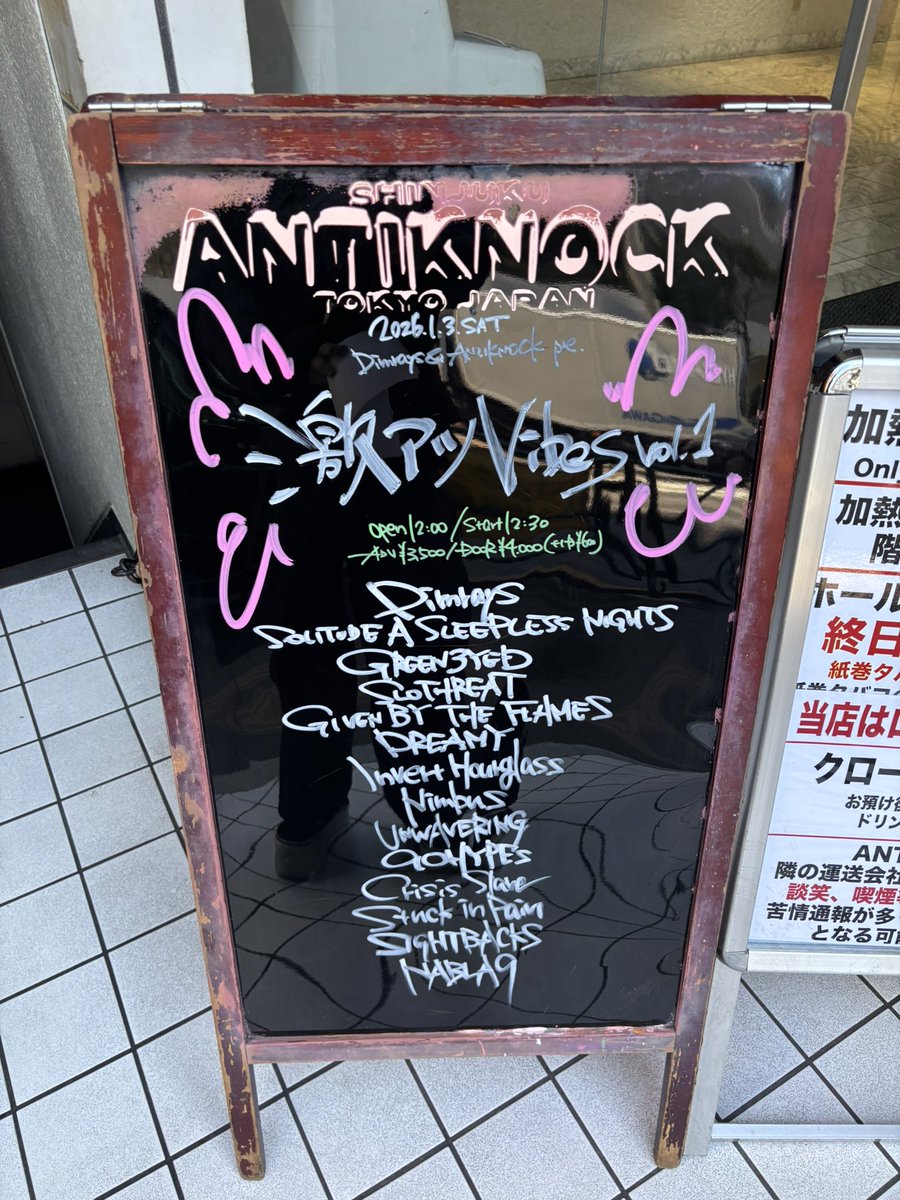 SHINJUKU
ANTIKNOCK
TOKYO JAPAN
2026.1.3.SAT
Dimrays & ANTIKNOCK pre.
激アツVibes vol.1
open12:00/Start12:30
ADV¥3,500/DOOR¥4,000(+1D¥600)
Dimrays
SOLITUDE A SLEEPLESS NIGHTS
GREEN3YED
SLOTHREAT
GIVEN BY THE FLAMES
DREAMY
Invert Hourglass
Nimbus
UNWAVERING
Crisis Slave
Stuck in Pain
SIGHTBACKS
NABLA9
加熱
Only
加熱
階
ホール
終日
紙巻タバ
当店は
クロー
お預け後
ドリン
ANT
隣の運送会社
談笑、喫煙
苦情通報が多
となる可能